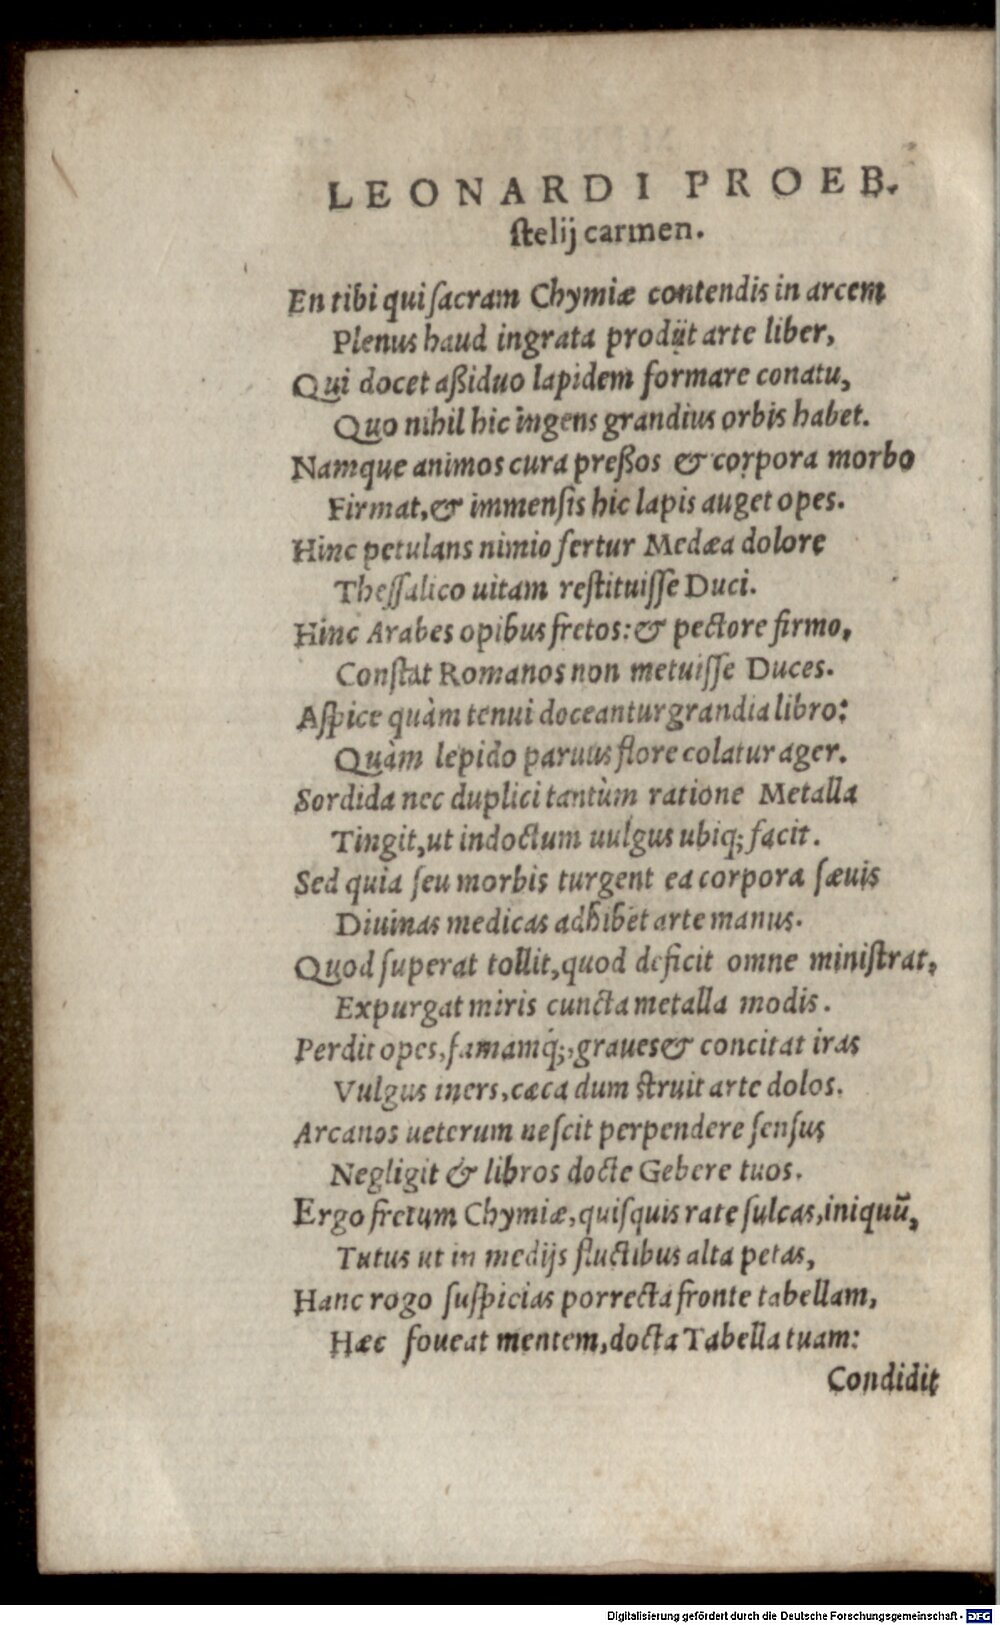 LEONARDI PROEB-
stelij carmen.
En tibi qui sacram Chymiæ contendis in arcem
Plenus haud ingrata prodijt arte liber,
Qui docet aßiduo lapidem formare conatu,
Quo nihil hic ingens grandius orbis habet.
Namque animos cura preßos & corpora morbo
Firmat, & immensis hic lapis auget opes.
Hinc petulans nimio fertur Medæa dolore
Thessalico uitam restituisse Duci.
Hinc Arabes opibus fretos: & pectore firmo,
Constat Romanos non metuisse Duces.
Aspice quàm tenui doceantur grandia libro:
Quàm lepido paruus flore colatur ager.
Sordida nec duplici tantùm ratione Metalla
Tingit, ut indoctum uulgus ubiq; facit.
Sed quia seu morbis turgent ea corpora sæuis
Diuinas medicas adhibet arte manus.
Quod superat tollit, quod deficit omne ministrat,
Expurgat miris cuncta metalla modis.
Perdit opes, famamq́;, graues & concitat iras
Vulgus iners, cæca dum struit arte dolos.
Arcanos ueterum nescit perpendere sensus
Negligit & libros docte Gebere tuos.
Ergo fretum Chymiæ, quisquis rate sulcas, iniquũ,
Tutus ut in medijs fluctibus alta petas,
Hanc rogo suspicias porrecta fronte tabellam,
Hæc foueat mentem, docta Tabella tuam:
Condidit
Digitalisierung gefördert durch die Deutsche Forschungsgemeinschaft - DFG